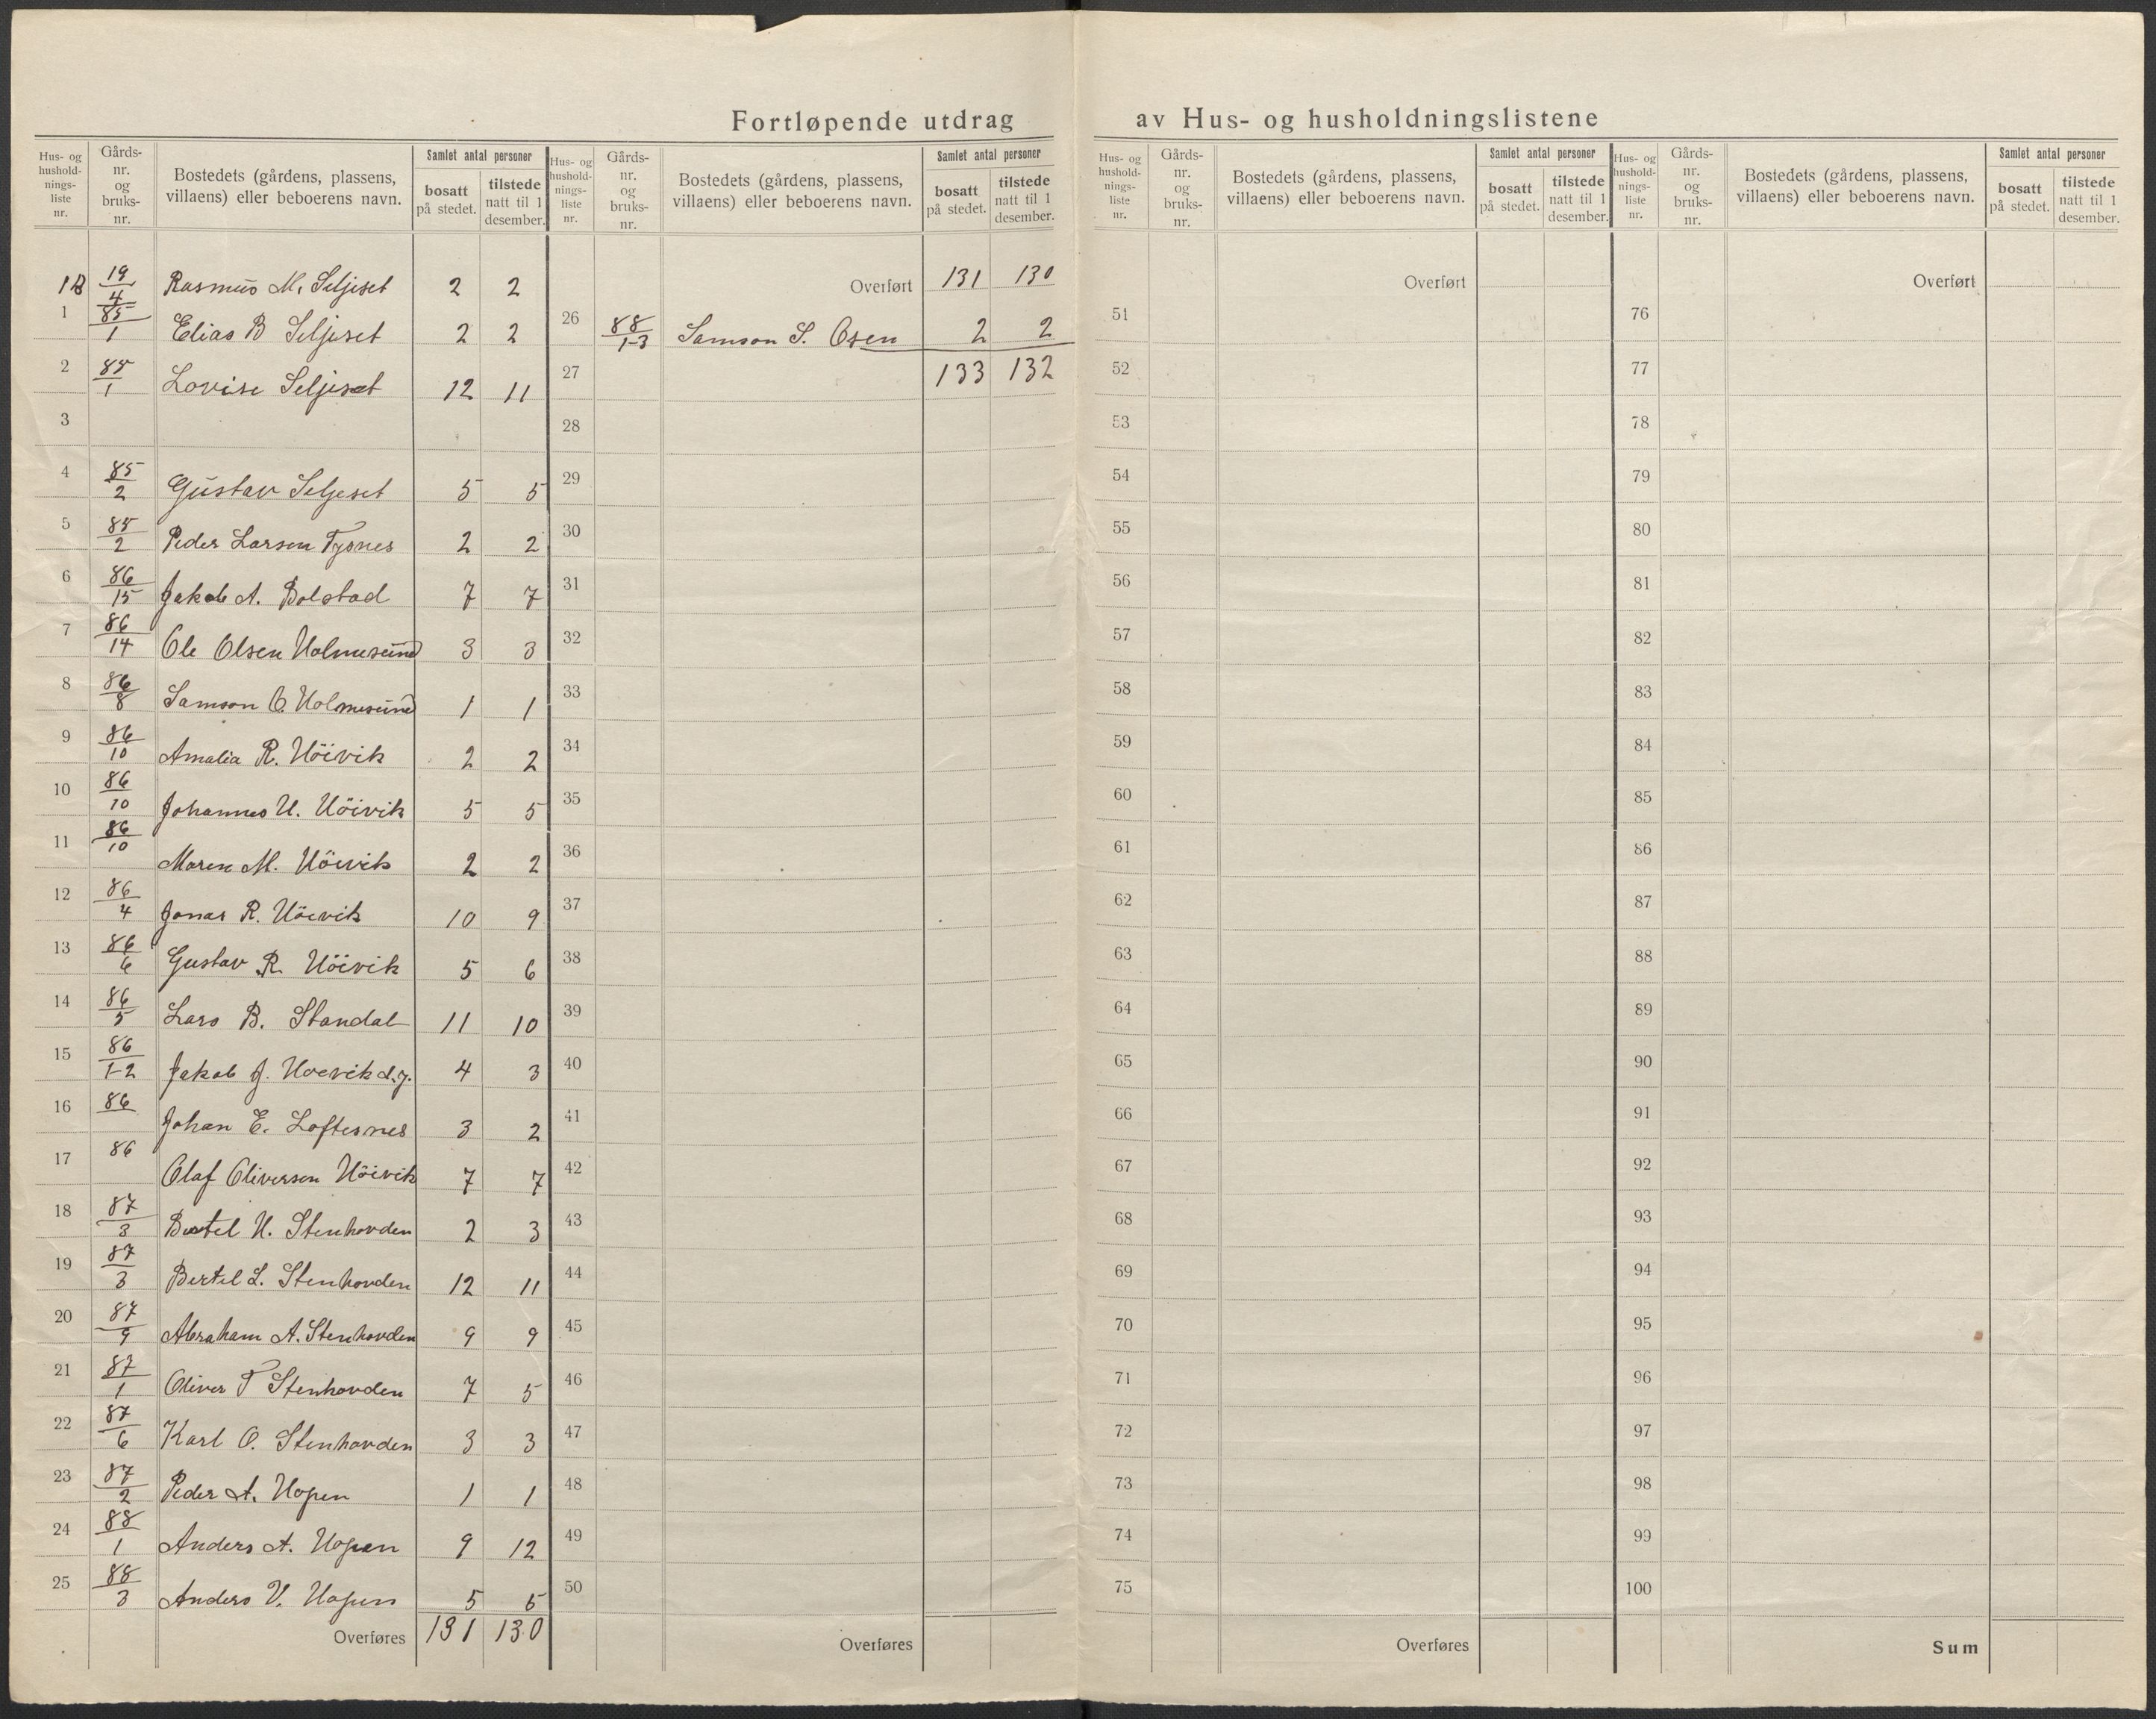 Fortløpende utdrag av Hus- og husholdningslistene
Hus- og hushold-nings-liste nr. | Gårds-nr. og bruks-nr. | Bostedets (gårdens, plassens, villaens) eller beboerens navn. | Samlet antal personer | bosatt på stedet. | tilstede natt til 1 desember.
Hus- og hushold-nings-liste nr. | Gårds-nr. og bruks-nr. | Bostedets (gårdens, plassens, villaens) eller beboerens navn. | Samlet antal personer | bosatt på stedet. | tilstede natt til 1 desember.
Hus- og hushold-nings-liste nr. | Gårds-nr. og bruks-nr. | Bostedets (gårdens, plassens, villaens) eller beboerens navn. | Samlet antal personer | bosatt på stedet. | tilstede natt til 1 desember.
Hus- og hushold-nings-liste nr. | Gårds-nr. og bruks-nr. | Bostedets (gårdens, plassens, villaens) eller beboerens navn. | Samlet antal personer | bosatt på stedet. | tilstede natt til 1 desember.
19/4 Rasmus M. Seljeset 2 2
1 85/1 Elias B Seljeset 2 2
2 85/1 Lovise Seljeset 12 11
3
4 85/2 Gustav Seljeset 5 5
5 85/2 Peder Larsen Tysnes 2 2
6 86/15 Jakob A. Bolstad 7 7
7 86/14 Ole Olsen Holmesund 3 3
8 86/8 Samson O. Holmesund 1 1
9 86/10 Amalia R. Höivik 2 2
10 86/10 Johannes H. Höivik 5 5
11 86/10 Maren M. Höivik 2 2
12 86/4 Jonas R. Höivik 10 9
13 86/6 Gustav R. Höivik 5 6
14 86/5 Lars B. Standal 11 10
15 86/1-2 Jakob J. Hoevik d.y. 4 3
16 86 Johan E. Loftesnes 3 2
17 86 Olaf Oliversen Höivik 7 7
18 87/3 Bertel H. Stenhovden 2 3
19 87/3 Bertel L. Stenhovden 12 11
20 87/9 Abraham A. Stenhovden 9 9
21 87/1 Oliver T Stenhovden 7 5
22 87/6 Karl O. Stenhovden 3 3
23 87/2 Peder A. Hopen 1 1
24 88/1 Anders A. Hopen 9 12
25 88/3 Anders V. Hopen 5 5
Overføres 131 130
Overført 131 130
26 88/1-3 Samson S. Osen 2 2
27 133 132
28
29
30
31
32
33
34
35
36
37
38
39
40
41
42
43
44
45
46
47
48
49
50
Overføres
Overført
51
52
53
54
55
56
57
58
59
60
61
62
63
64
65
66
67
68
69
70
71
72
73
74
75
Overføres
Overført
76
77
78
79
80
81
82
83
84
85
86
87
88
89
90
91
92
93
94
95
96
97
98
99
100
Sum